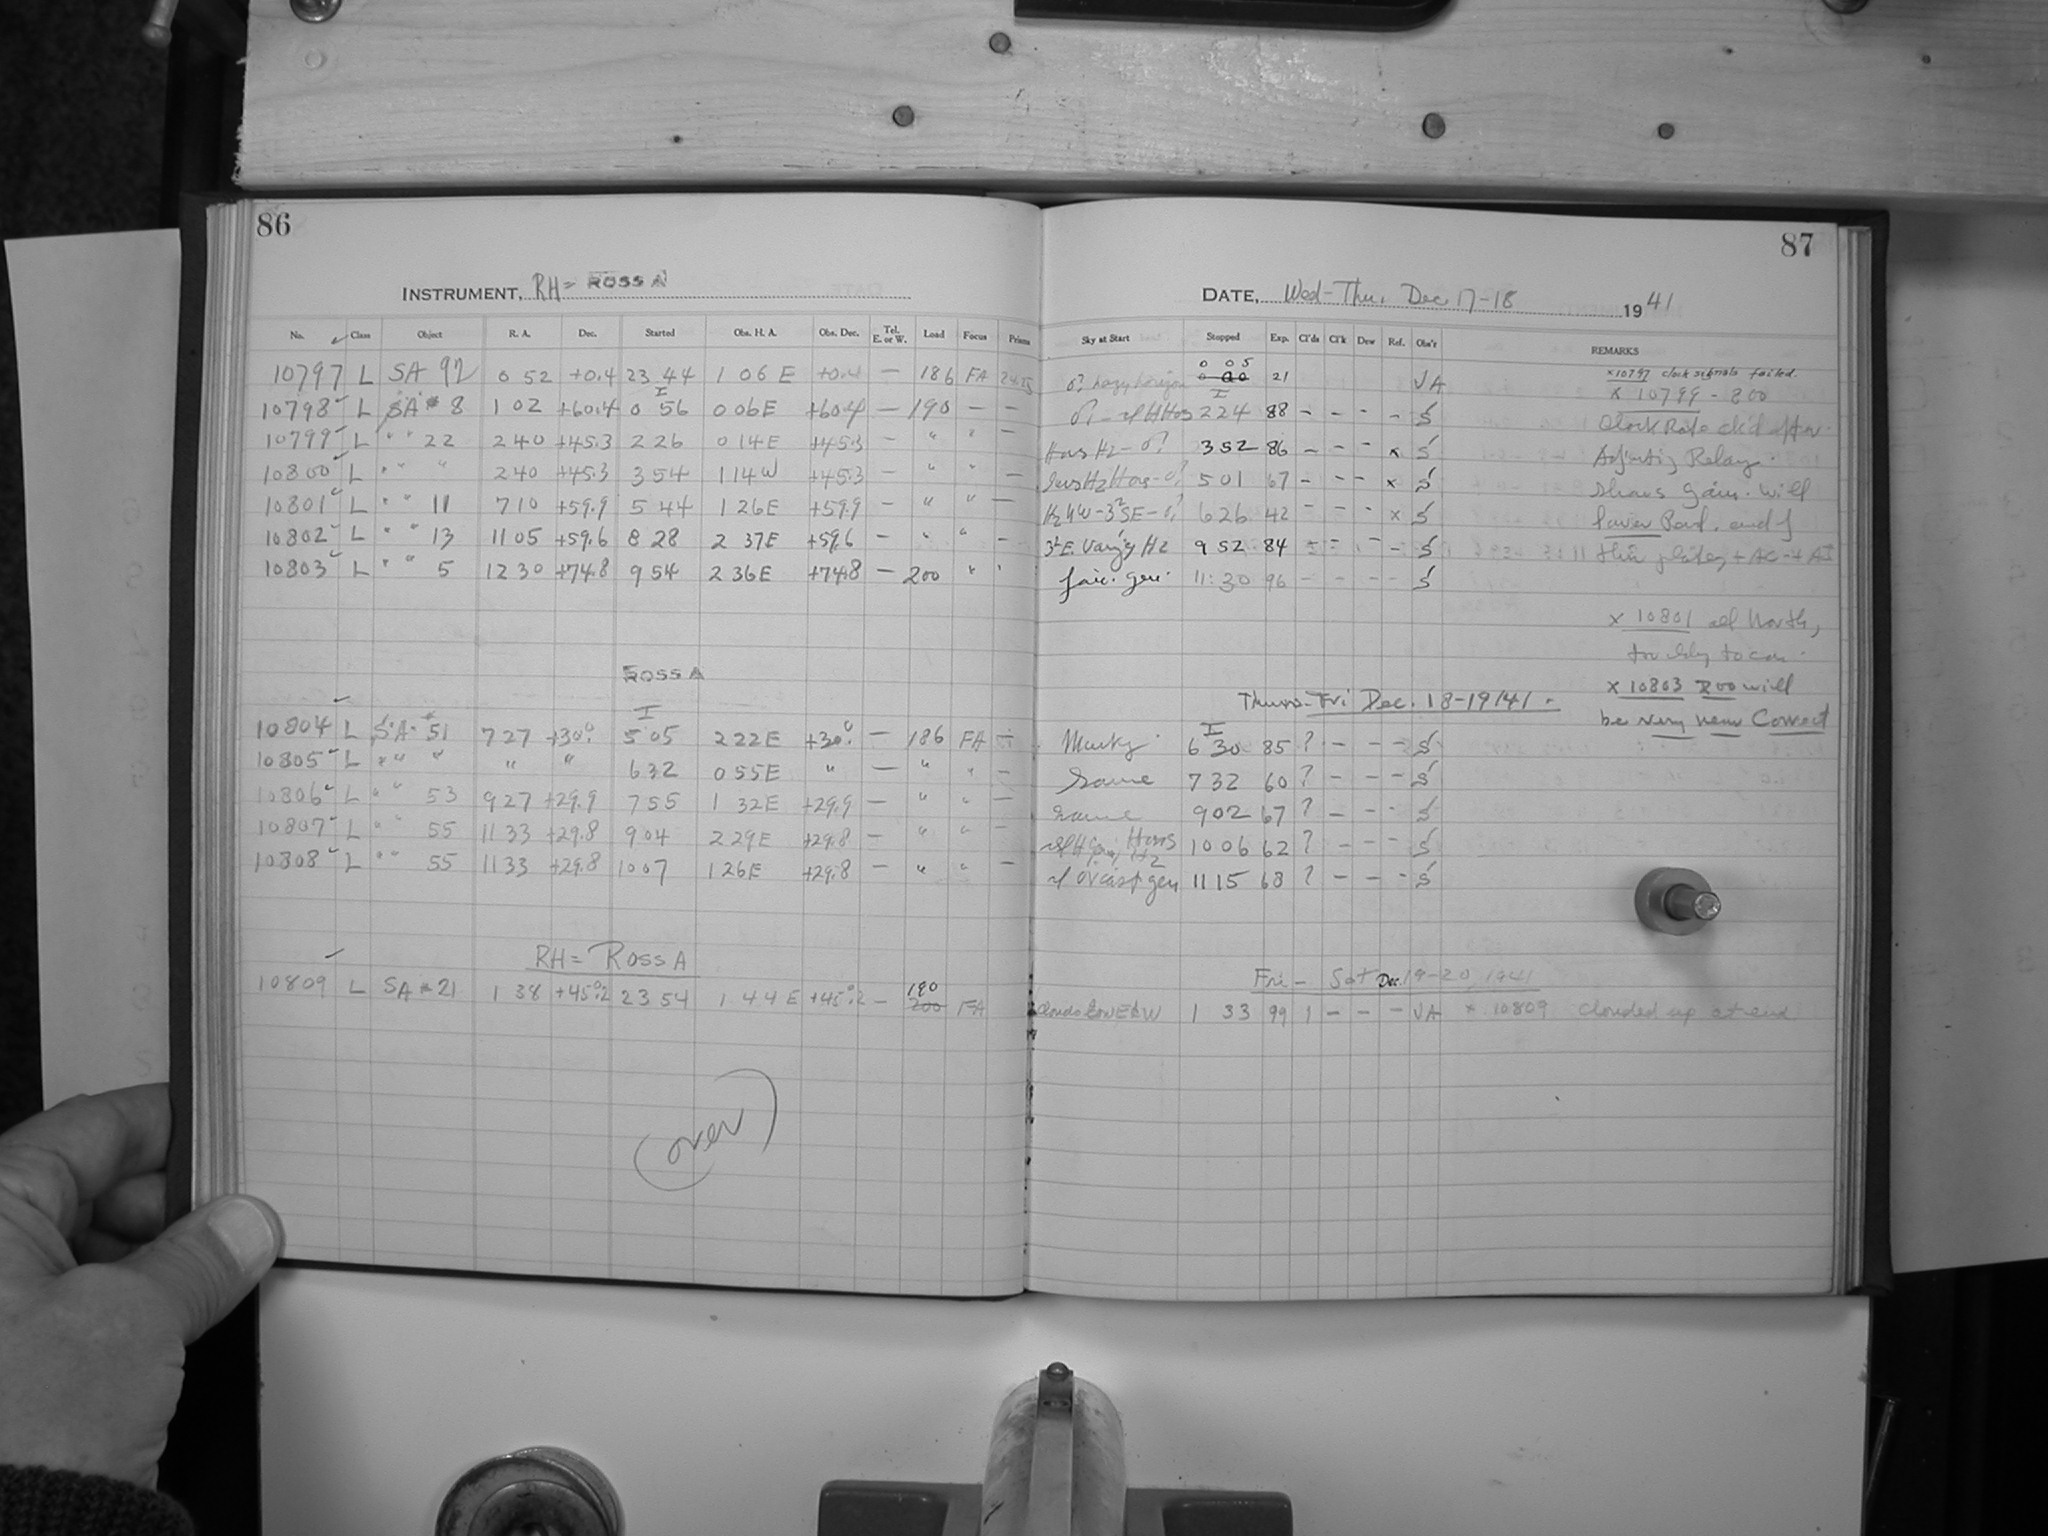 86
INSTRUMENT, RH= ROSS A
No. Class Object R. A. Dec. Started Obs. H. A. Obs. Dec. Tel. E. or W. Load Focus Prisms
10797 L SA 92 0 52 +0.4 23 44 1 06 E +0.4 — 186 FA
I
10798 L SA 8 1 02 +60.4 0 56 0 06E +60.4 — 190 — —
10799 L " " 22 2 40 +45.3 2 26 0 14E +45.3 — " " —
10800 L " " " 2 40 +45.3 3 54 1 14W +45.3 — " " —
10801 L " " 11 7 10 +59.9 5 44 1 26E +59.9 — " " —
10802 L " " 13 11 05 +59.6 8 28 2 37E +59.6 — " " —
10803 L " " 5 12 30 +74.8 9 54 2 36E +74.8 — 200 " "
ROSS A
I
10804 L S.A. 51 7 27 +30° 5 05 2 22E +30° — 186 FA —
10805 L " " " " " 6 32 0 55E " — " " —
10806 L " " 53 9 27 +29.9 7 55 1 32E +29.9 — " " —
10807 L " " 55 11 33 +29.8 9 04 2 29E +29.8 — " " —
10808 L " " 55 11 33 +29.8 10 07 1 26E +29.8 — " " —
RH= ROSS A
10809 L SA 21 1 38 +45°.2 23 54 1 44 E +45°.2 — 190 200 FA
(over)
87
DATE, Wed-Thu. Dec 17-18 1941
Sky at Start Stopped Exp. Cl'ds Cl'k Dew Ref. Obs'r REMARKS
hazy horizon 0 05 21 JA x10797 clock signals failed.
I
2 24 88 — — — — S x 10799 - 800
3 52 86 — — — x S Clock Rate ck'd after
5 01 67 — — — x S Adjusting Relay.
6 26 42 — — — x S Shows gain. Will
9 52 84 — — — — S
11:30 96 — — — — S
x 10801
x 10803 200 will
be very near Correct
Thurs-Fri Dec. 18-19/41 -
I
Murky 6 30 85 ? — — — S
Same 7 32 60 ? — — — S
Same 9 02 67 ? — — — S
10 06 62 ? — — — S
Ovcast gen 11 15 68 ? — — — S
Fri - Sat Dec. 19-20, 1941
Clouds low E & W 1 33 99 1 — — — JA x 10809 clouded up at end